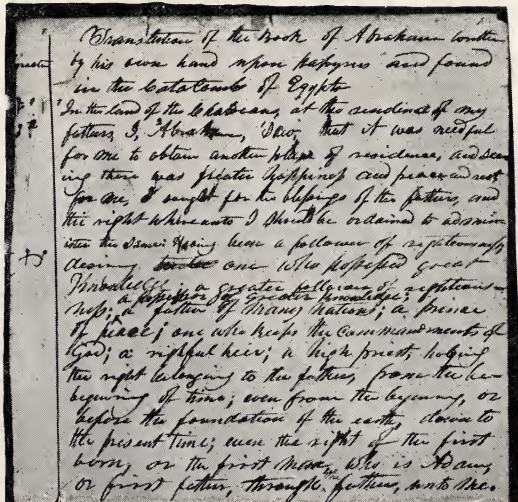 Translation of the Book of Abraham written
by his own hand upon papyrus and found
in the Catacombs of Egypt
In the land of the Chaldeans, at the residence of my
fathers, I, Abraham, saw, that it was needful
for me to obtain another place of residence, and see
ing there was greater happiness and peace and rest
for me, I sought for the blessings of the fathers, and
the right whereunto I should be ordained to admin
ister the same: Having been a follower of righteousness
desiring one who possessed great
Knowledge; a greater follower of righteous
a possessor of greater Knowledge;
ness; a father of many nations; a prince
of peace; one who keeps the commandments of
God; a rightful heir; a high priest, holding
the right belonging to the fathers, from the be
begining of time; even from the begining, or
before the foundation of the earth, down to
the present time; even the right of the first
born, or the first man, who is Adam,
or first father, through fathers, unto me.